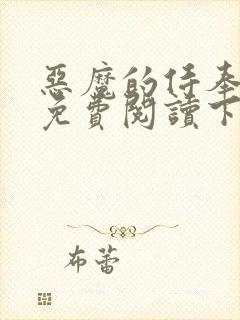 惡魔的侍奉
免費閱讀下
布蕾